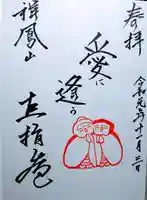 奉拝
令和元年十二月三日
愛に
逢う
祥鳳山
直指庵